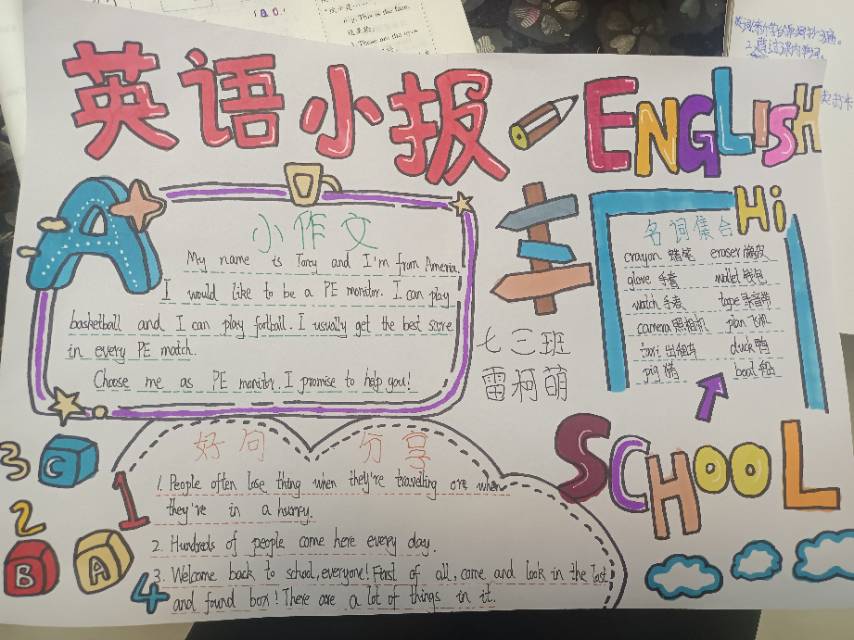 英语小报
ENGLISH
A
小作文
My name is Tony and I'm from America.
I would like to be a PE monitor. I can play
basketball and I can play football. I usually get the best score
in every PE match.
Choose me as PE monitor. I promise to help you!
七三班
雷柯萌
Hi
名词集合
crayon 蜡笔 eraser 橡皮
glove 手套 wallet 钱包
watch 手表 tape 录音带
camera 照相机 plan 飞机
taxi 出租车 duck 鸭
pig 猪 boat 船
SCHOOL
好句 分享
1. People often lose thing when they're travelling or when
they're in a hurry.
2. Hundreds of people come here every day.
3. Welcome back to school, everyone! First of all, come and look in the lost
and found box! There are a lot of things in it.
3
C
2
B
A
1
4